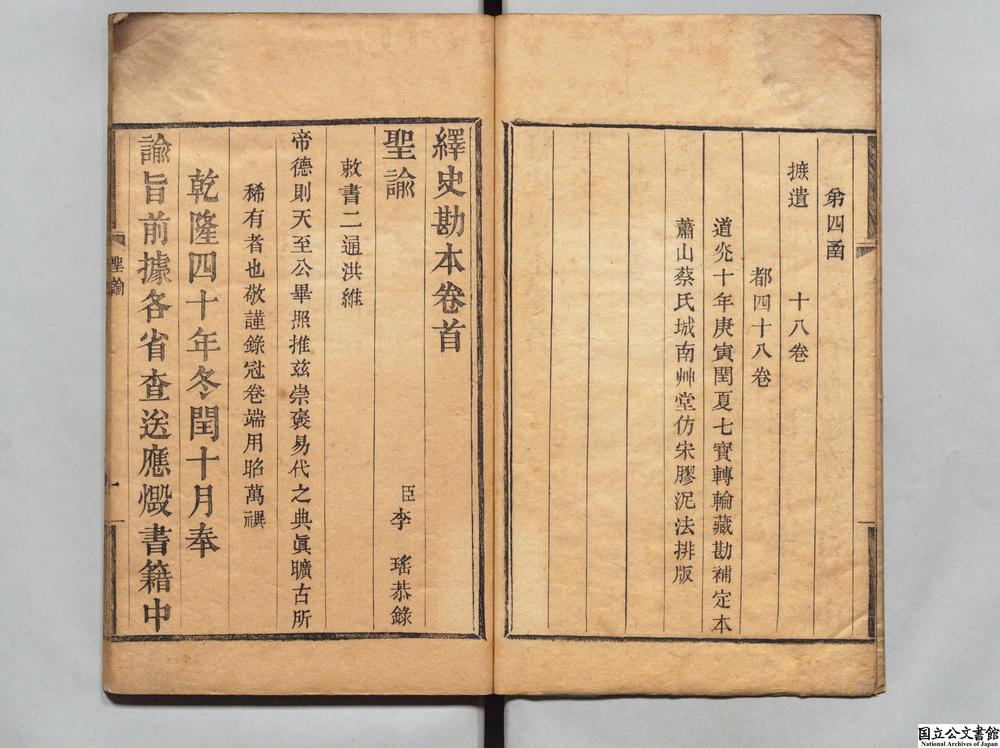 第四函
摭遺 十八卷
都四十八卷
道光十年庚寅閏夏七寶轉輪藏勘補定本
蕭山蔡氏城南艸堂仿宋膠泥法排版
繹史勘本卷首
聖諭 臣李 瑤恭錄
敕書二通洪維
帝德則天至公畢照推兹崇褒易代之典眞曠古所
稀有者也敬謹錄冠卷端用昭萬禩
乾隆四十年冬閏十月奉
諭旨前據各省查送應燬書籍中
聖諭
一
国立公文書館
National Archives of Japan